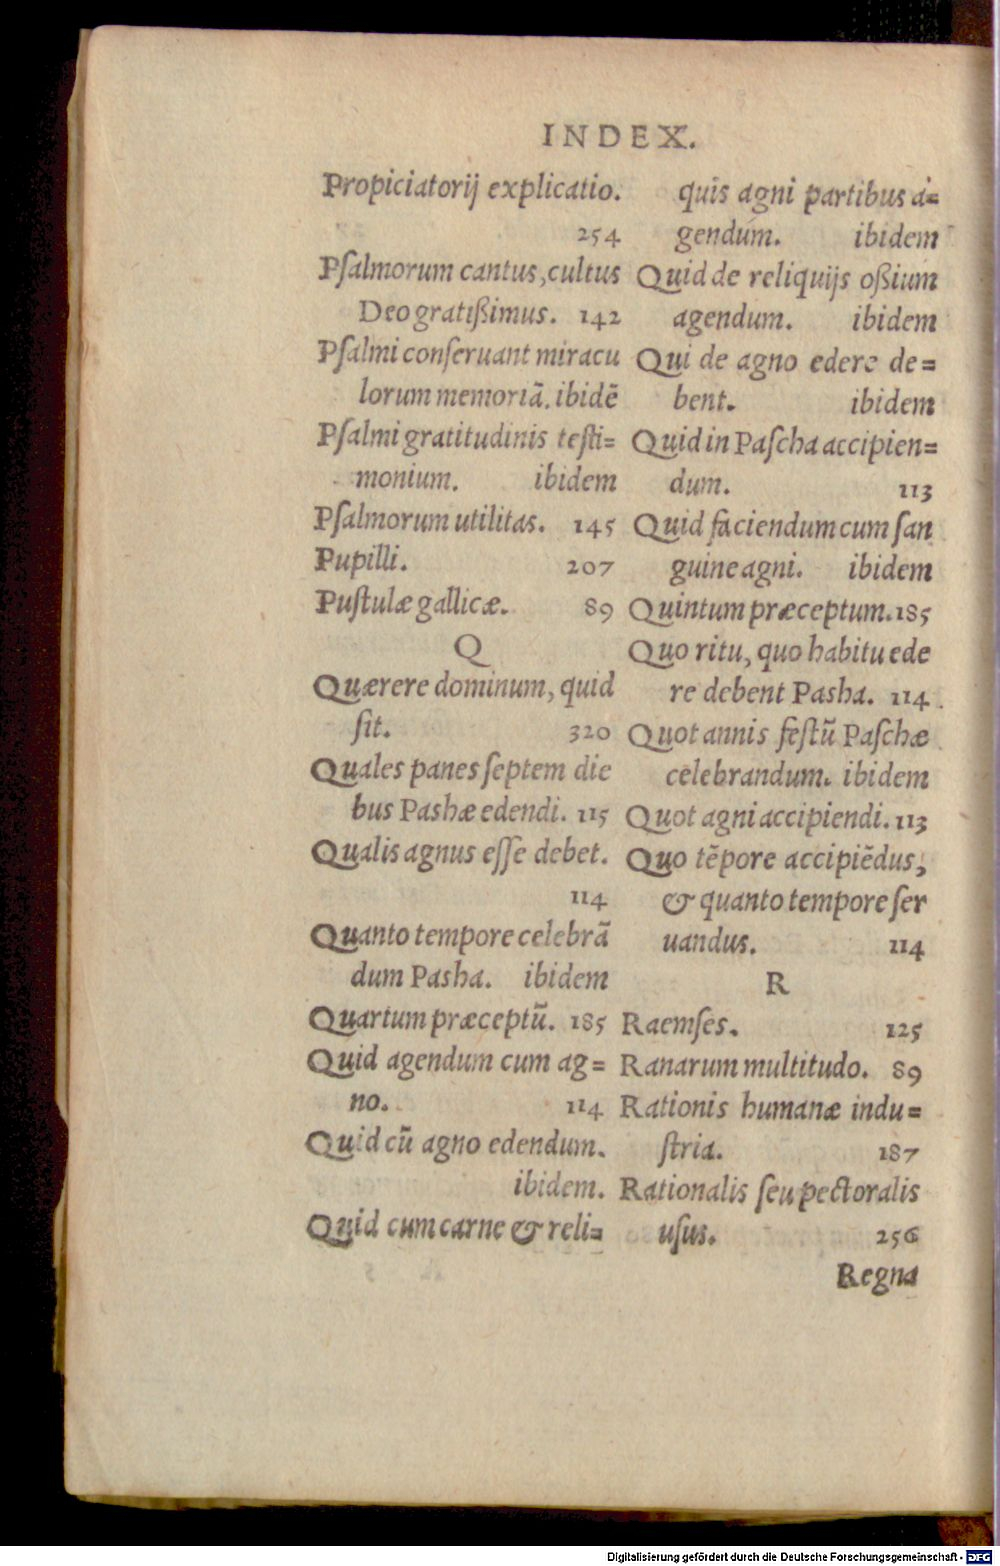 INDEX.
Propiciatorij explicatio.
254
Pſalmorum cantus, cultus
Deo gratißimus. 142
Pſalmi conſeruant miracu
lorum memoriã. ibidẽ
Pſalmi gratitudinis teſti=
monium. ibidem
Pſalmorum utilitas. 145
Pupilli. 207
Puſtulæ gallicæ. 89
Q
Quærere dominum, quid
ſit. 320
Quales panes ſeptem die
bus Pashæ edendi. 115
Qualis agnus eſſe debet.
114
Quanto tempore celebrã
dum Pasha. ibidem
Quartum præceptũ. 185
Quid agendum cum ag=
no. 114
Quid cũ agno edendum.
ibidem.
Quid cum carne & reli=
quis agni partibus a=
gendum. ibidem
Quid de reliquijs oßium
agendum. ibidem
Qui de agno edere de=
bent. ibidem
Quid in Paſcha accipien=
dum. 113
Quid faciendum cum ſan
guine agni. ibidem
Quintum præceptum. 185
Quo ritu, quo habitu ede
re debent Pasha. 114
Quot annis feſtũ Paſchæ
celebrandum. ibidem
Quot agni accipiendi. 113
Quo tẽpore accipiẽdus,
& quanto tempore ſer
uandus. 114
R
Raemſes. 125
Ranarum multitudo. 89
Rationis humanæ indu=
ſtria. 187
Rationalis ſeu pectoralis
uſus. 256
Regna
Digitalisierung gefördert durch die Deutsche Forschungsgemeinschaft - DFG